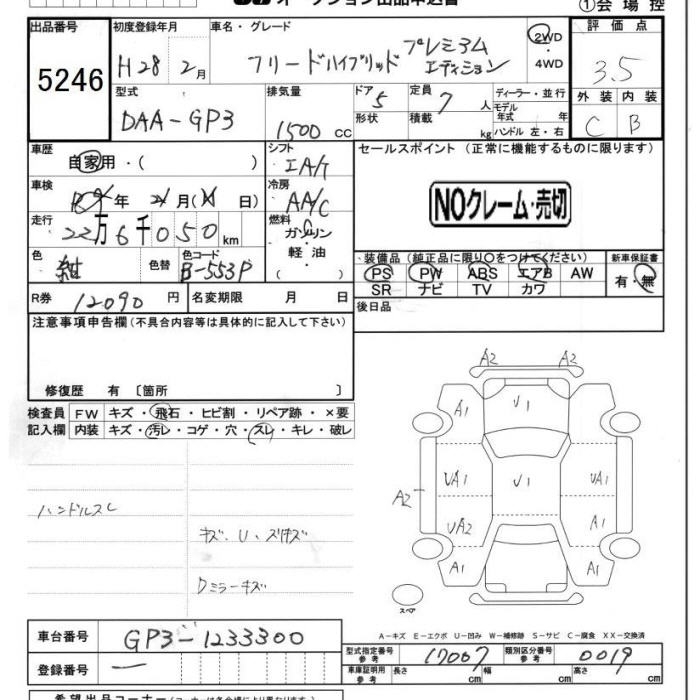 オークション出品申込書
①会場控
出品番号
5246
初度登録年月
H28 2月
車名・グレード
フリードハイブリッド プレミアムエディション
2WD
・4WD
評価点
3.5
型式
DAA-GP3
排気量
1500 cc
ドア
5
形状
定員
7 人
積載
kg
ディーラー・並行
モデル年式 年
ハンドル 左・右
外装 内装
C B
車歴
自家用・( )
シフト
IA/T
車検
年 月( 日)
冷房
AA/C
走行
22万6千050 km
燃料
ガソリン
軽油
( )
色
紺
色替
色コード
B-553P
R券
12090 円
名変期限 月 日
セールスポイント(正常に機能するものに限ります)
NOクレーム・売切
装備品(純正品に限り○をつけてください)
PS PW ABS エアB AW
SR ナビ TV カワ
新車保証書
有・無
後日品
注意事項申告欄(不具合内容等は具体的に記入して下さい)
修復歴 有〔箇所 〕
検査員記入欄
FW キズ・飛石・ヒビ割・リペア跡・×要
内装 キズ・汚レ・コゲ・穴・スレ・キレ・破レ
ハンドルスレ
キズ、U・スリキズ
Dミラーキズ
A2 A2
A1 U1 A1
UA1 U1 UA1
A2 UA2 A1
A1 A1
スペア
A-キズ E-エクボ U-凹み W-補修跡 S-サビ C-腐食 XX-交換済
車台番号
GP3-1233300
登録番号
—
型式指定番号 参考
17007
類別区分番号 参考
0019
車庫証明用 参考
長さ cm 幅 cm 高さ cm
希望出品コーナー